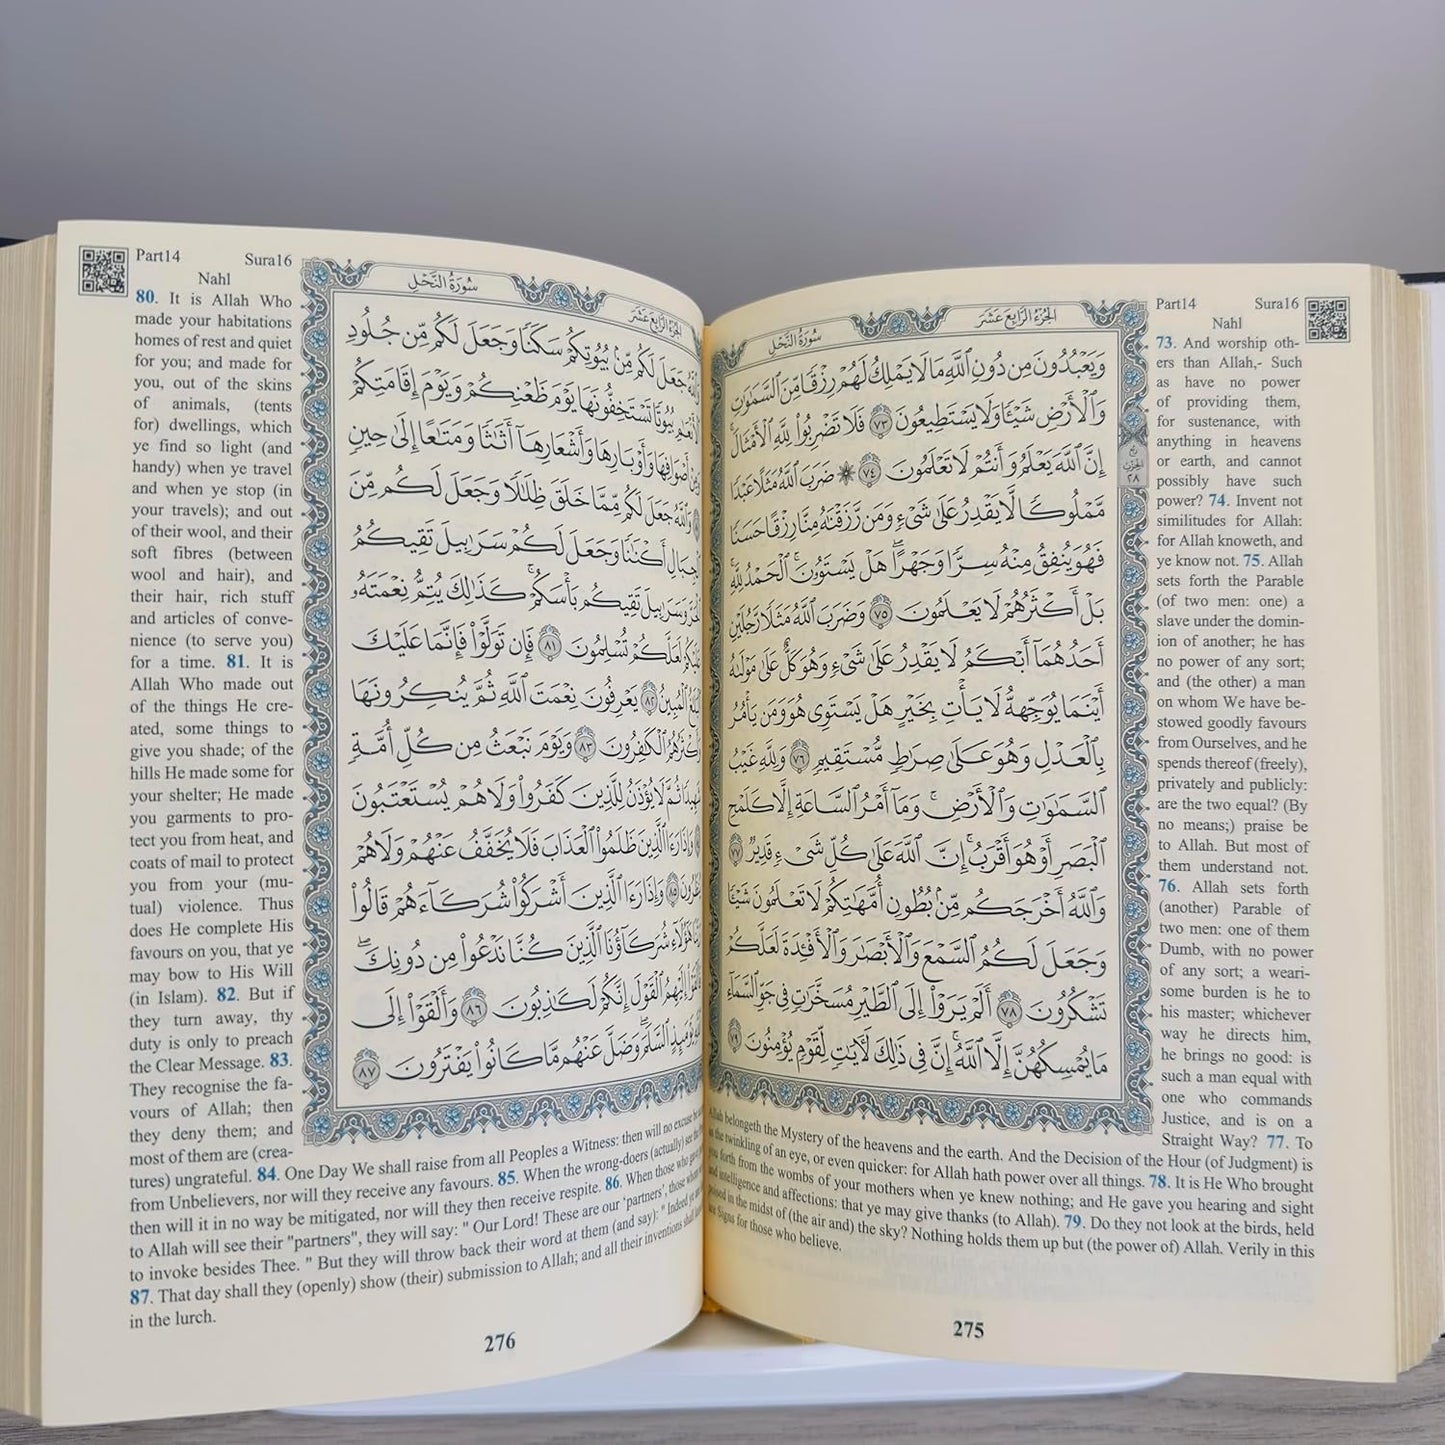 Part14 Sura16
Nahl
الجزء الرابع عشر
سورة النحل
وَيَعْبُدُونَ مِن دُونِ ٱللَّهِ مَا لَا يَمْلِكُ لَهُمْ رِزْقًا مِّنَ ٱلسَّمَٰوَٰتِ
وَٱلْأَرْضِ شَيْـًٔا وَلَا يَسْتَطِيعُونَ ٧٣ فَلَا تَضْرِبُوا۟ لِلَّهِ ٱلْأَمْثَالَ ۚ
إِنَّ ٱللَّهَ يَعْلَمُ وَأَنتُمْ لَا تَعْلَمُونَ ٧٤ ۞ ضَرَبَ ٱللَّهُ مَثَلًا عَبْدًا
مَّمْلُوكًا لَّا يَقْدِرُ عَلَىٰ شَىْءٍ وَمَن رَّزَقْنَٰهُ مِنَّا رِزْقًا حَسَنًا
فَهُوَ يُنفِقُ مِنْهُ سِرًّا وَجَهْرًا ۖ هَلْ يَسْتَوُۥنَ ۚ ٱلْحَمْدُ لِلَّهِ ۚ
بَلْ أَكْثَرُهُمْ لَا يَعْلَمُونَ ٧٥ وَضَرَبَ ٱللَّهُ مَثَلًا رَّجُلَيْنِ
أَحَدُهُمَآ أَبْكَمُ لَا يَقْدِرُ عَلَىٰ شَىْءٍ وَهُوَ كَلٌّ عَلَىٰ مَوْلَىٰهُ
أَيْنَمَا يُوَجِّههُّ لَا يَأْتِ بِخَيْرٍ ۖ هَلْ يَسْتَوِى هُوَ وَمَن يَأْمُرُ
بِٱلْعَدْلِ ۙ وَهُوَ عَلَىٰ صِرَٰطٍ مُّسْتَقِيمٍ ٧٦ وَلِلَّهِ غَيْبُ
ٱلسَّمَٰوَٰتِ وَٱلْأَرْضِ ۚ وَمَآ أَمْرُ ٱلسَّاعَةِ إِلَّا كَلَمْحِ
ٱلْبَصَرِ أَوْ هُوَ أَقْرَبُ ۚ إِنَّ ٱللَّهَ عَلَىٰ كُلِّ شَىْءٍ قَدِيرٌ ٧٧
وَٱللَّهُ أَخْرَجَكُم مِّنۢ بُطُونِ أُمَّهَٰتِكُمْ لَا تَعْلَمُونَ شَيْـًٔا
وَجَعَلَ لَكُمُ ٱلسَّمْعَ وَٱلْأَبْصَٰرَ وَٱلْأَفْـِٔدَةَ ۙ لَعَلَّكُمْ
تَشْكُرُونَ ٧٨ أَلَمْ يَرَوْا۟ إِلَى ٱلطَّيْرِ مُسَخَّرَٰتٍ فِى جَوِّ ٱلسَّمَآءِ
مَا يُمْسِكُهُنَّ إِلَّا ٱللَّهُ ۗ إِنَّ فِى ذَٰلِكَ لَءَايَٰتٍ لِّقَوْمٍ يُؤْمِنُونَ ٧٩
٢٨
73. And worship oth-
ers than Allah,- Such
as have no power
of providing them,
for sustenance, with
anything in heavens
or earth, and cannot
possibly have such
power? 74. Invent not
similitudes for Allah:
for Allah knoweth, and
ye know not. 75. Allah
sets forth the Parable
(of two men: one) a
slave under the domin-
ion of another; he has
no power of any sort;
and (the other) a man
on whom We have be-
stowed goodly favours
from Ourselves, and he
spends thereof (freely),
privately and publicly:
are the two equal? (By
no means;) praise be
to Allah. But most of
them understand not.
76. Allah sets forth
(another) Parable of
two men: one of them
Dumb, with no power
of any sort; a weari-
some burden is he to
his master; whichever
way he directs him,
he brings no good: is
such a man equal with
one who commands
Justice, and is on a
Straight Way? 77. To
Allah belongeth the Mystery of the heavens and the earth. And the Decision of the Hour (of Judgment) is
as the twinkling of an eye, or even quicker: for Allah hath power over all things. 78. It is He Who brought
you forth from the wombs of your mothers when ye knew nothing; and He gave you hearing and sight
and intelligence and affections: that ye may give thanks (to Allah). 79. Do they not look at the birds, held
poised in the midst of (the air and) the sky? Nothing holds them up but (the power of) Allah. Verily in this
are Signs for those who believe.
275
Part14 Sura16
Nahl
الجزء الرابع عشر
سورة النحل
وَٱللَّهُ جَعَلَ لَكُم مِّنۢ بُيُوتِكُمْ سَكَنًا وَجَعَلَ لَكُم مِّن جُلُودِ
ٱلْأَنْعَٰمِ بُيُوتًا تَسْتَخِفُّونَهَا يَوْمَ ظَعْنِكُمْ وَيَوْمَ إِقَامَتِكُمْ ۙ
وَمِنْ أَصْوَافِهَا وَأَوْبَارِهَا وَأَشْعَارِهَآ أَثَٰثًا وَمَتَٰعًا إِلَىٰ حِينٍ
وَٱللَّهُ جَعَلَ لَكُم مِّمَّا خَلَقَ ظِلَٰلًا وَجَعَلَ لَكُم مِّنَ
ٱلْجِبَالِ أَكْنَٰنًا وَجَعَلَ لَكُمْ سَرَٰبِيلَ تَقِيكُمُ
ٱلْحَرَّ وَسَرَٰبِيلَ تَقِيكُم بَأْسَكُمْ ۚ كَذَٰلِكَ يُتِمُّ نِعْمَتَهُۥ
عَلَيْكُمْ لَعَلَّكُمْ تُسْلِمُونَ ٨١ فَإِن تَوَلَّوْا۟ فَإِنَّمَا عَلَيْكَ
ٱلْبَلَٰغُ ٱلْمُبِينُ ٨٢ يَعْرِفُونَ نِعْمَتَ ٱللَّهِ ثُمَّ يُنكِرُونَهَا
وَأَكْثَرُهُمُ ٱلْكَٰفِرُونَ ٨٣ وَيَوْمَ نَبْعَثُ مِن كُلِّ أُمَّةٍ
شَهِيدًا ثُمَّ لَا يُؤْذَنُ لِلَّذِينَ كَفَرُوا۟ وَلَا هُمْ يُسْتَعْتَبُونَ
وَإِذَا رَءَا ٱلَّذِينَ ظَلَمُوا۟ ٱلْعَذَابَ فَلَا يُخَفَّفُ عَنْهُمْ وَلَا هُمْ
يُنظَرُونَ ٨٥ وَإِذَا رَءَا ٱلَّذِينَ أَشْرَكُوا۟ شُرَكَآءَهُمْ قَالُوا۟
رَبَّنَا هَٰٓؤُلَآءِ شُرَكَآؤُنَا ٱلَّذِينَ كُنَّا نَدْعُوا۟ مِن دُونِكَ ۖ
فَأَلْقَوْا۟ إِلَيْهِمُ ٱلْقَوْلَ إِنَّكُمْ لَكَٰذِبُونَ ٨٦ وَأَلْقَوْا۟ إِلَى
ٱللَّهِ يَوْمَئِذٍ ٱلسَّلَمَ ۖ وَضَلَّ عَنْهُم مَّا كَانُوا۟ يَفْتَرُونَ ٨٧
80. It is Allah Who
made your habitations
homes of rest and quiet
for you; and made for
you, out of the skins
of animals, (tents
for) dwellings, which
ye find so light (and
handy) when ye travel
and when ye stop (in
your travels); and out
of their wool, and their
soft fibres (between
wool and hair), and
their hair, rich stuff
and articles of conve-
nience (to serve you)
for a time. 81. It is
Allah Who made out
of the things He cre-
ated, some things to
give you shade; of the
hills He made some for
your shelter; He made
you garments to pro-
tect you from heat, and
coats of mail to protect
you from your (mu-
tual) violence. Thus
does He complete His
favours on you, that ye
may bow to His Will
(in Islam). 82. But if
they turn away, thy
duty is only to preach
the Clear Message. 83.
They recognise the fa-
vours of Allah; then
they deny them; and
most of them are (crea-
tures) ungrateful. 84. One Day We shall raise from all Peoples a Witness: then will no excuse be
from Unbelievers, nor will they receive any favours. 85. When the wrong-doers (actually) see the
then will it in no way be mitigated, nor will they then receive respite. 86. When those who gave
to Allah will see their "partners", they will say: " Our Lord! These are our 'partners', those whom
to invoke besides Thee. " But they will throw back their word at them (and say): " Indeed ye are
87. That day shall they (openly) show (their) submission to Allah; and all their inventions shall
in the lurch.
276